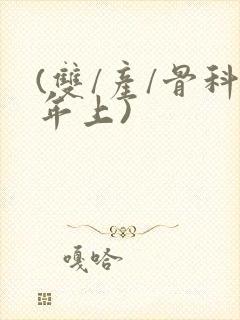 (雙/產/骨科
年上)
嘎哈